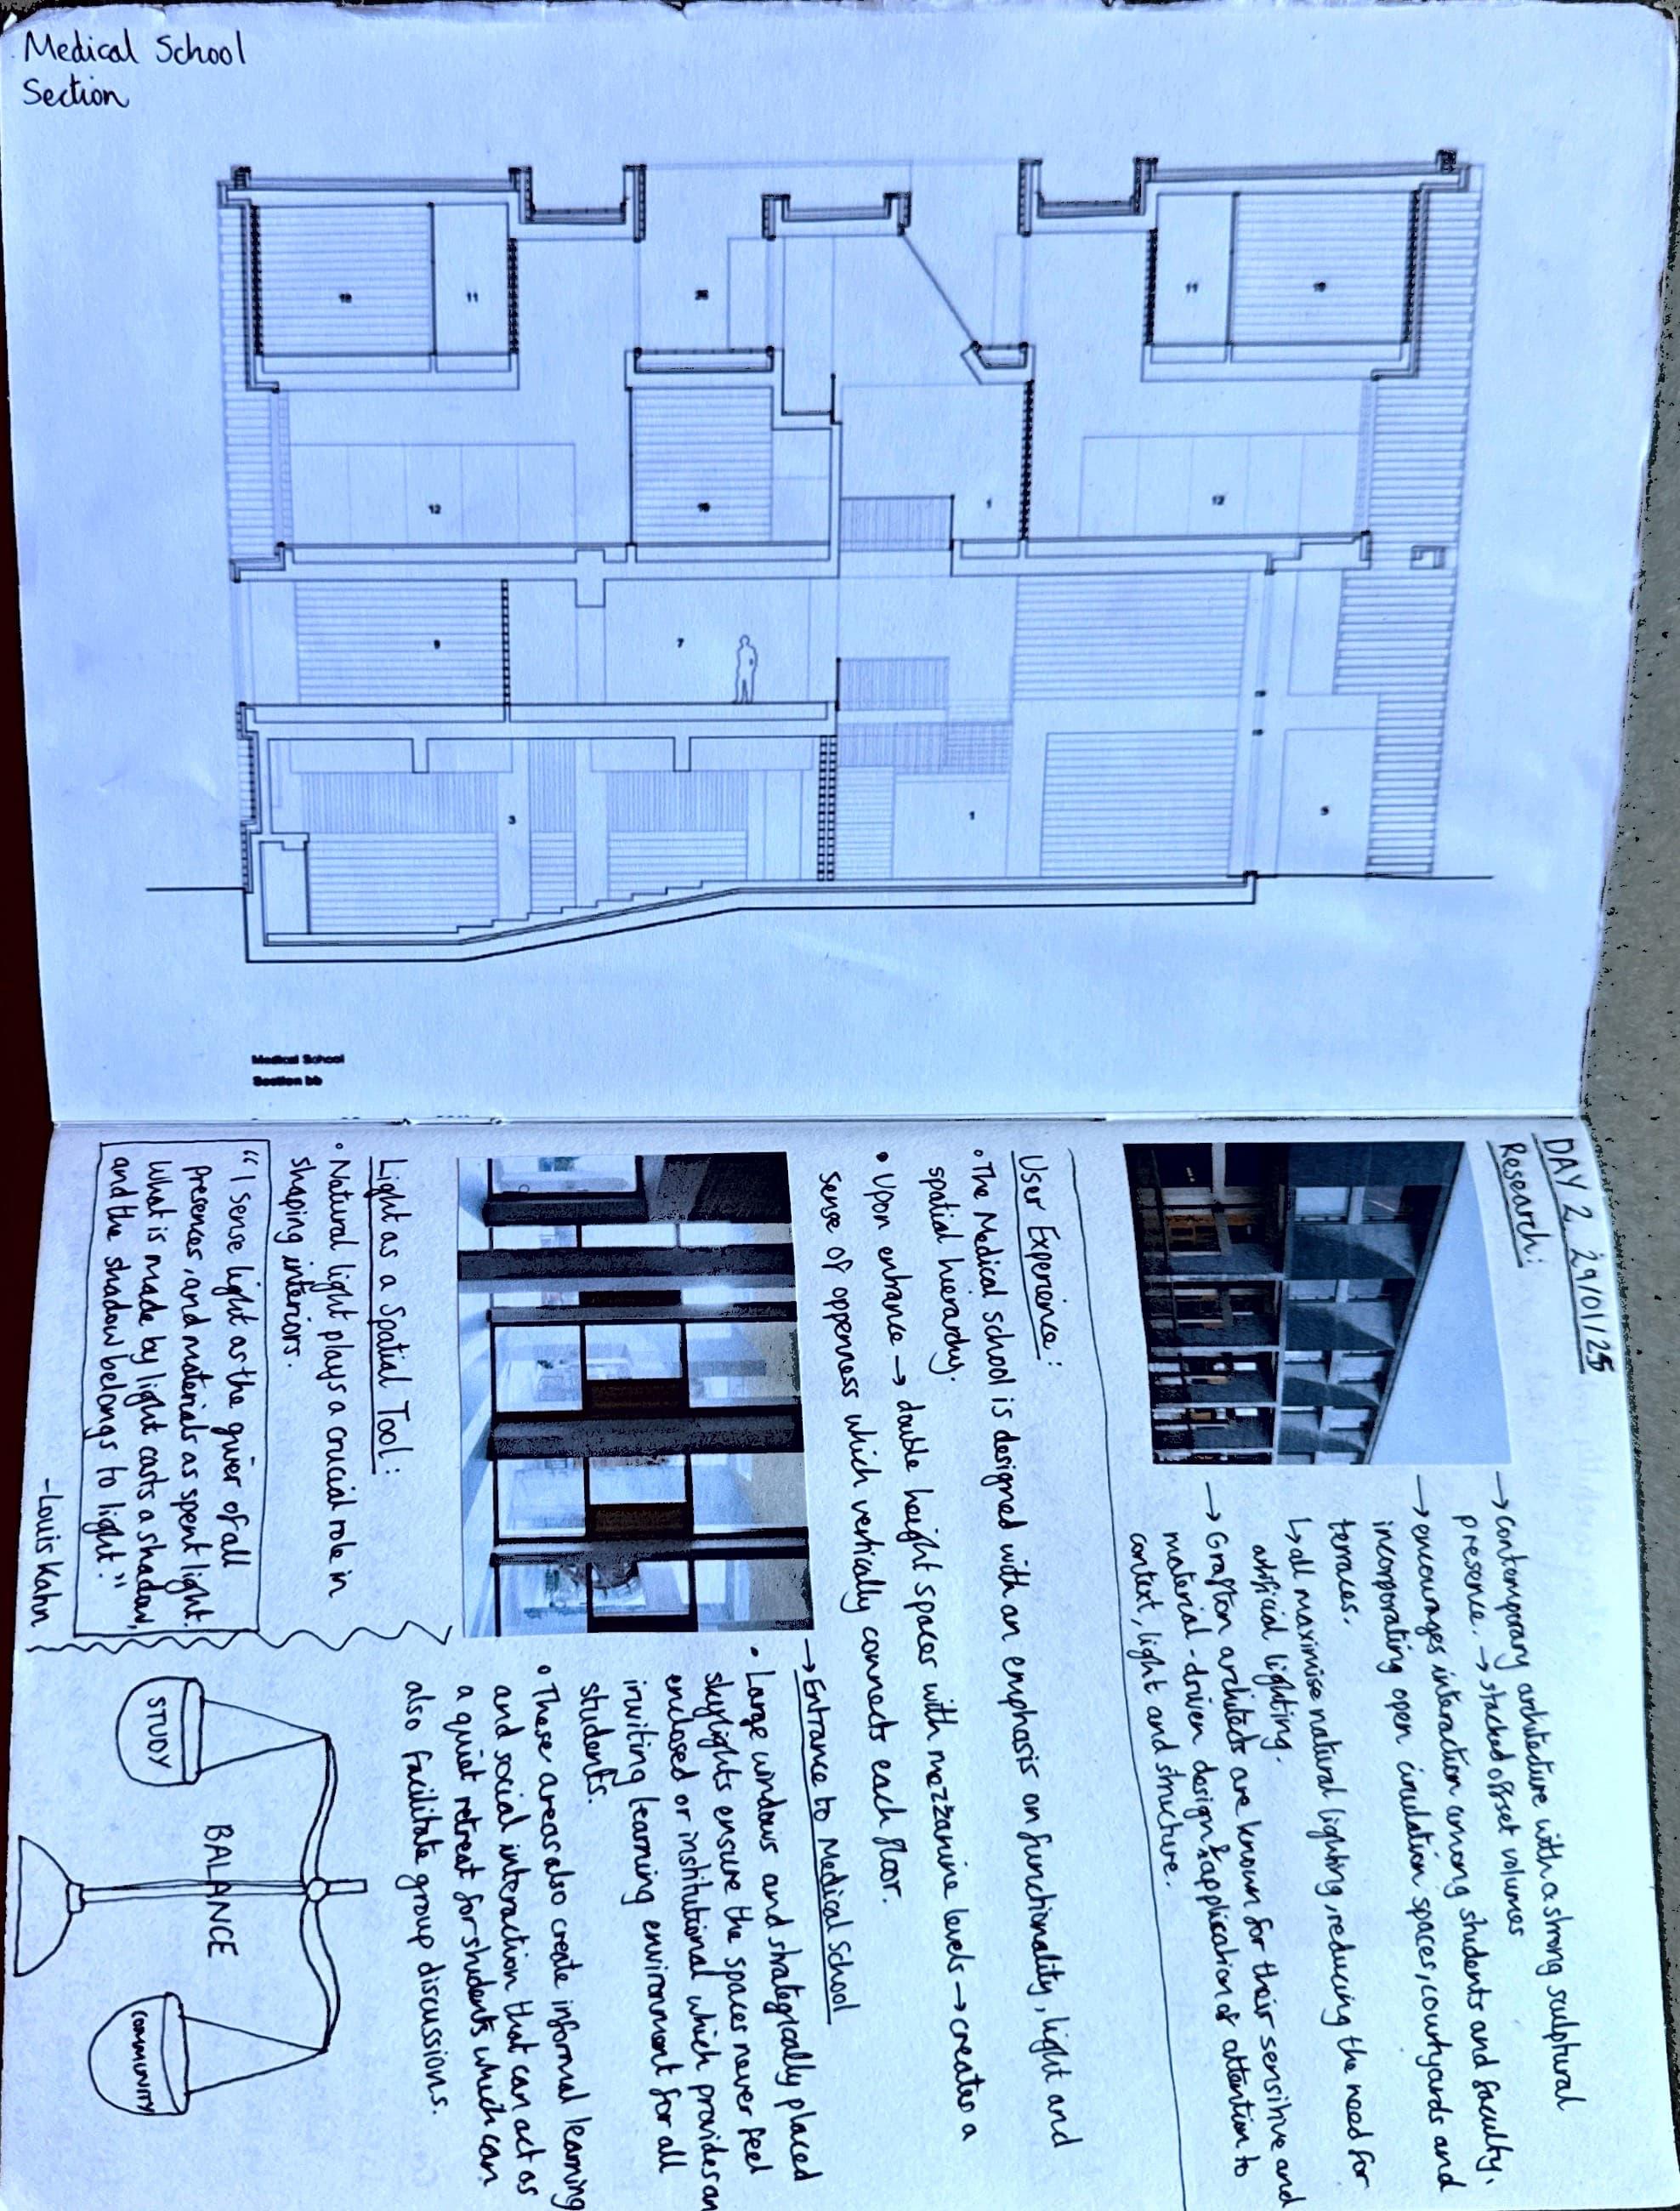 Medical School
Section
10
11
26
11
10
12
16
1
12
9
7
3
1
9
Medical School
Section bb
DAY 2 29/01/25
Research:
→ contemporary architecture with a strong sculptural
presence. → stacked offset volumes
→ encourages interaction among students and faculty,
incorporating open circulation spaces, courtyards and
terraces.
↳ all maximise natural lighting, reducing the need for
artificial lighting.
→ Grafton architects are known for their sensitive and
material-driven design & application of attention to
context, light and structure.
User Experience:
• The Medical School is designed with an emphasis on functionality, light and
spatial hierarchy.
• Upon entrance → double height spaces with mezzanine levels → creates a
sense of openness which vertically connects each floor.
→ Entrance to Medical School
• Large windows and strategically placed
skylights ensure the spaces never feel
enclosed or institutional which provides an
inviting learning environment for all
students.
• These areas also create informal learning
and social interaction that can act as
a quiet retreat for students which can
also facilitate group discussions.
Light as a Spatial Tool:
• Natural light plays a crucial role in
shaping interiors.
"I sense light as the giver of all
presences, and materials as spent light.
What is made by light casts a shadow,
and the shadow belongs to light."
-Louis Kahn
STUDY
BALANCE
COMMUNITY